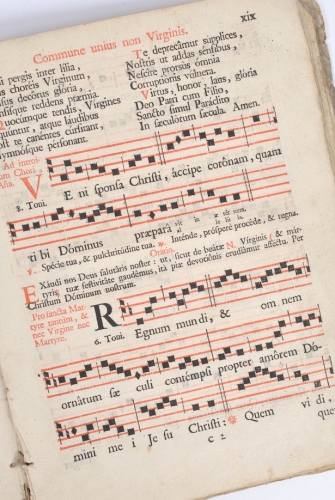 xix
Commune unius non Virginis.
pergis inter lilia,
choreis Virginum,
decórus glória,
reddens præmia.
Quocúmque tendis, Vírgines
laudibus
te canéntes cúrsitant,
Hymnósque personant.
Te deprecámur súpplices,
Nostris ut addas sénsibus,
Nescíre prorsus ómnia
Corruptiónis vúlnera.
Virtus, honor, laus, glória
Deo Patri cum Fílio,
Sancto simul Paráclito
In sæculórum sæcula. Amen.
Ad introi-
tum Chori,
VE ni sponsa Christi, áccipe corónam, quam
8. Toni.
ti bi Dóminus præpará
℣. Spécie tua, & pulchritúdine tua. ℟. Inténde, próspere procéde, & regna.
Orátio.
EXáudi nos Deus salutáris noster: ut, sicut de beátæ N. Vírginis (& már-
tyris) tuæ festivitáte gaudémus, ita piæ devotiónis erudiámur afféctu. Per
Christum Dóminum nostrum.
Pro sancta Mar-
tyre tantùm, &
nec Virgine nec
Martyre.
REgnum mundi, & om nem
6. Toni.
ornátum sæ culi contémpsi propter amórem Dó-
mini me i Je su Christi: Quem vi di,
C 2